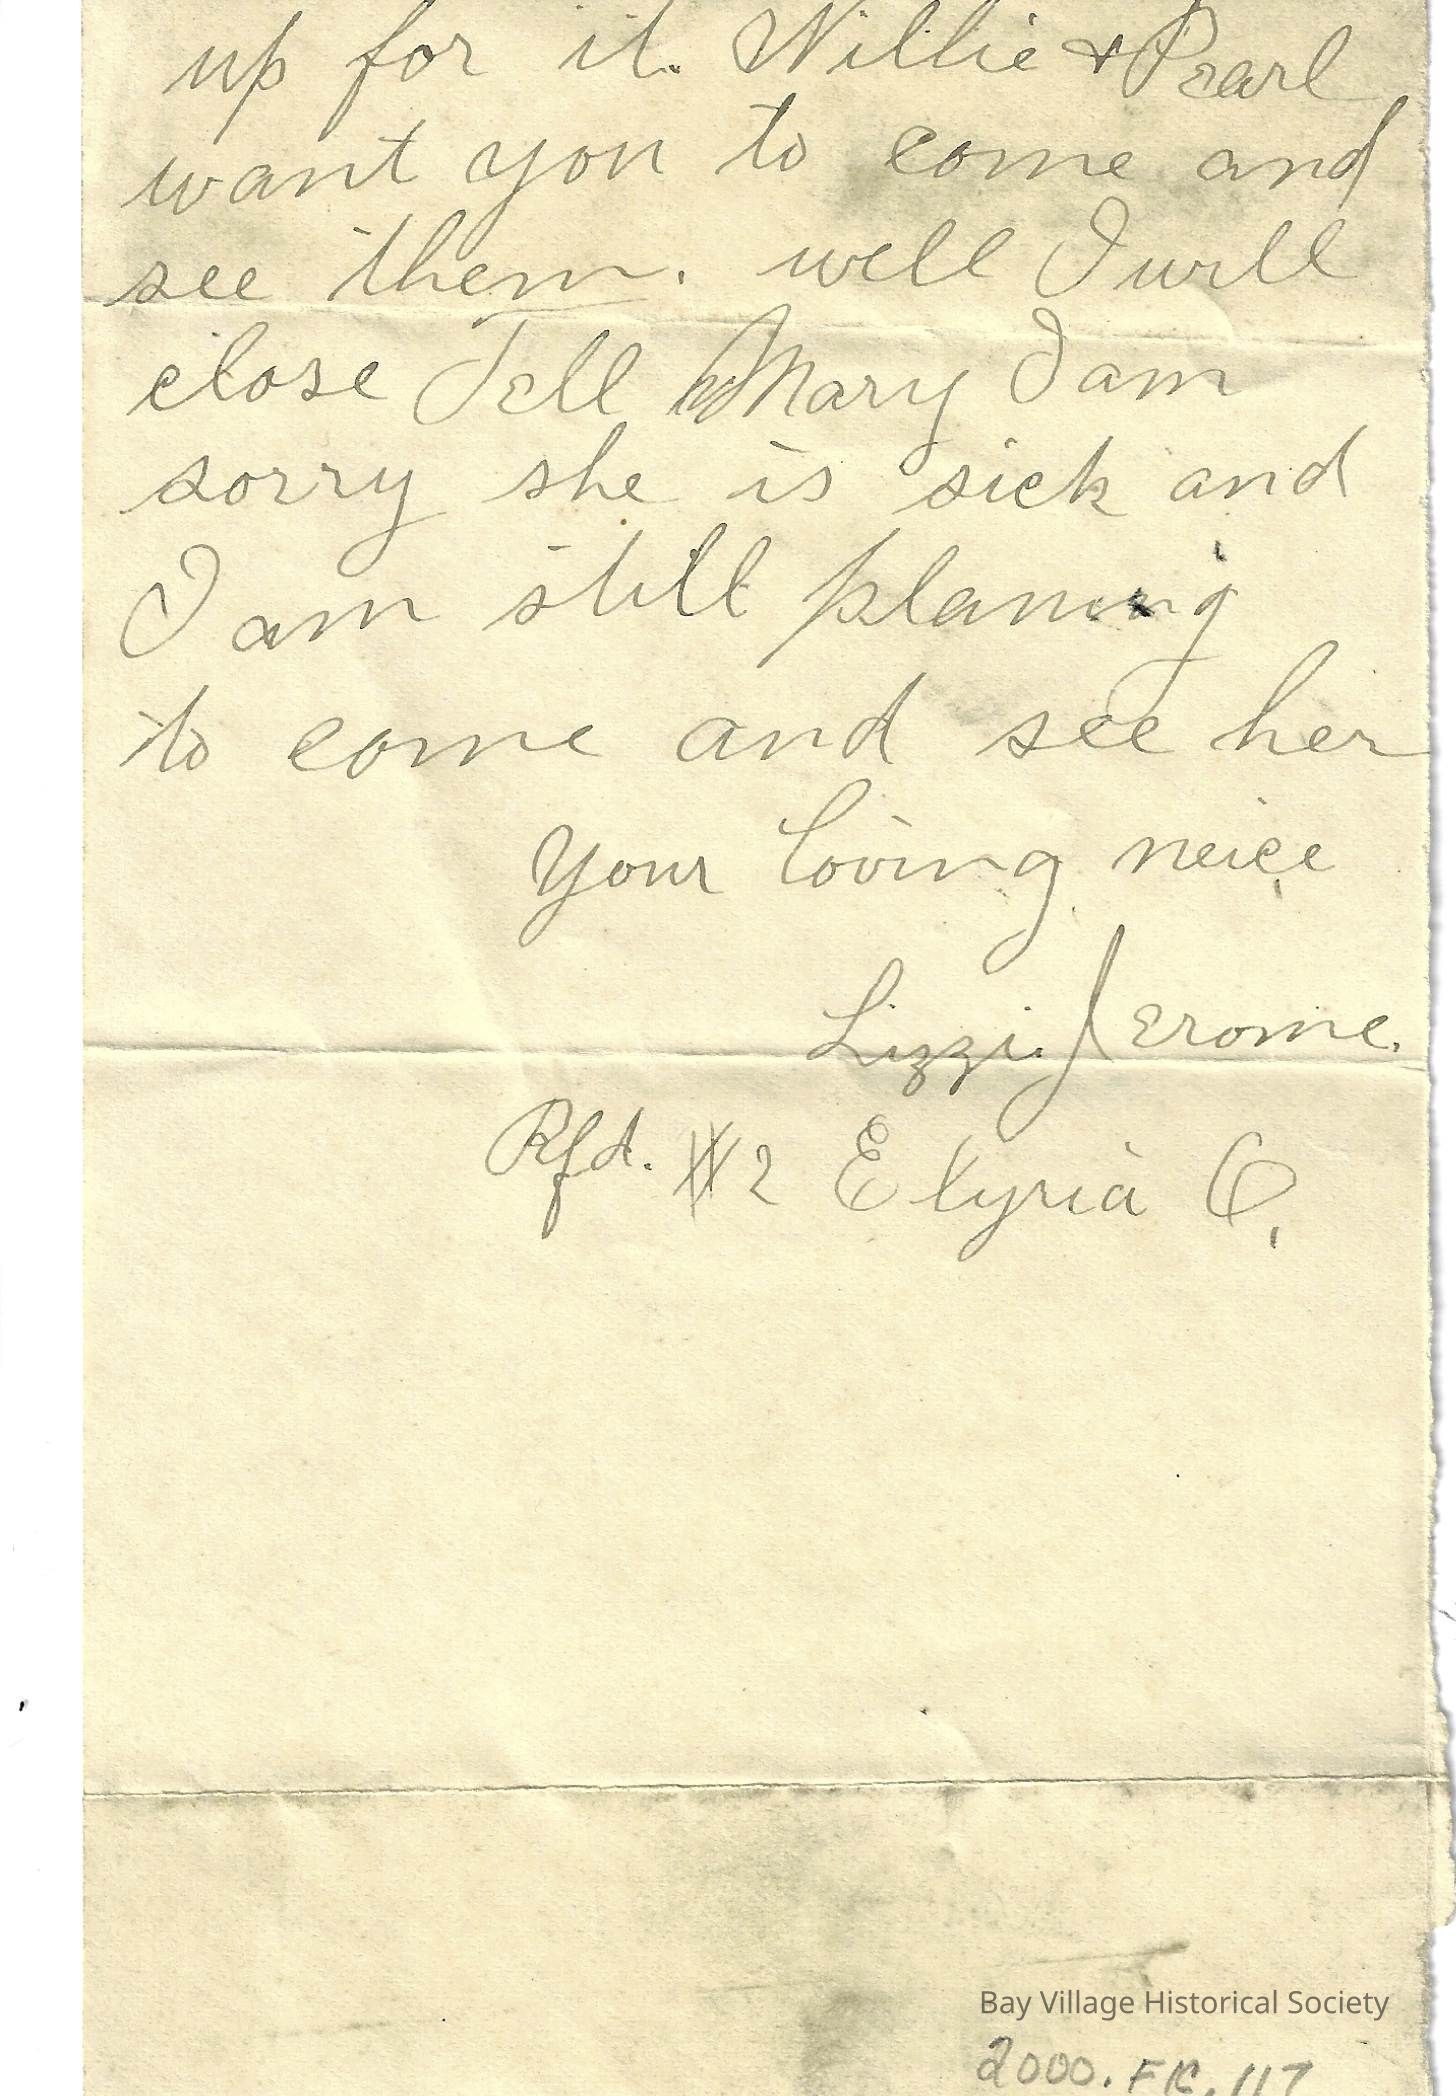 up for it. Willie & Pearl
want you to come and
see them. well I will
close Tell Mary I am
sorry she is sick and
I am still planing
to come and see her
Your loving neice
Lizzie Jerome.
Rfd. #2 Elyria O.
Bay Village Historical Society
2000.FIC.117